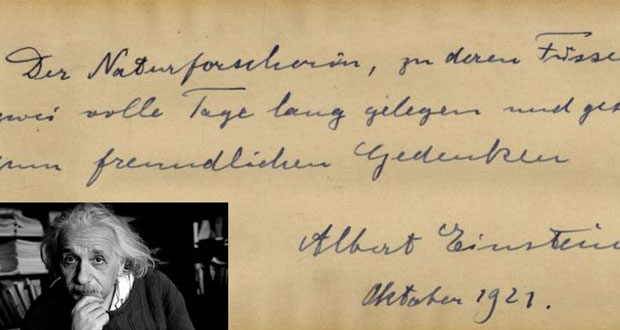 Der Naturforscherin, zu deren Füsse
zwei volle Tage lang gelegen und ges
zum freundlichen Gedenken
Albert Einstein
Oktober 1921.